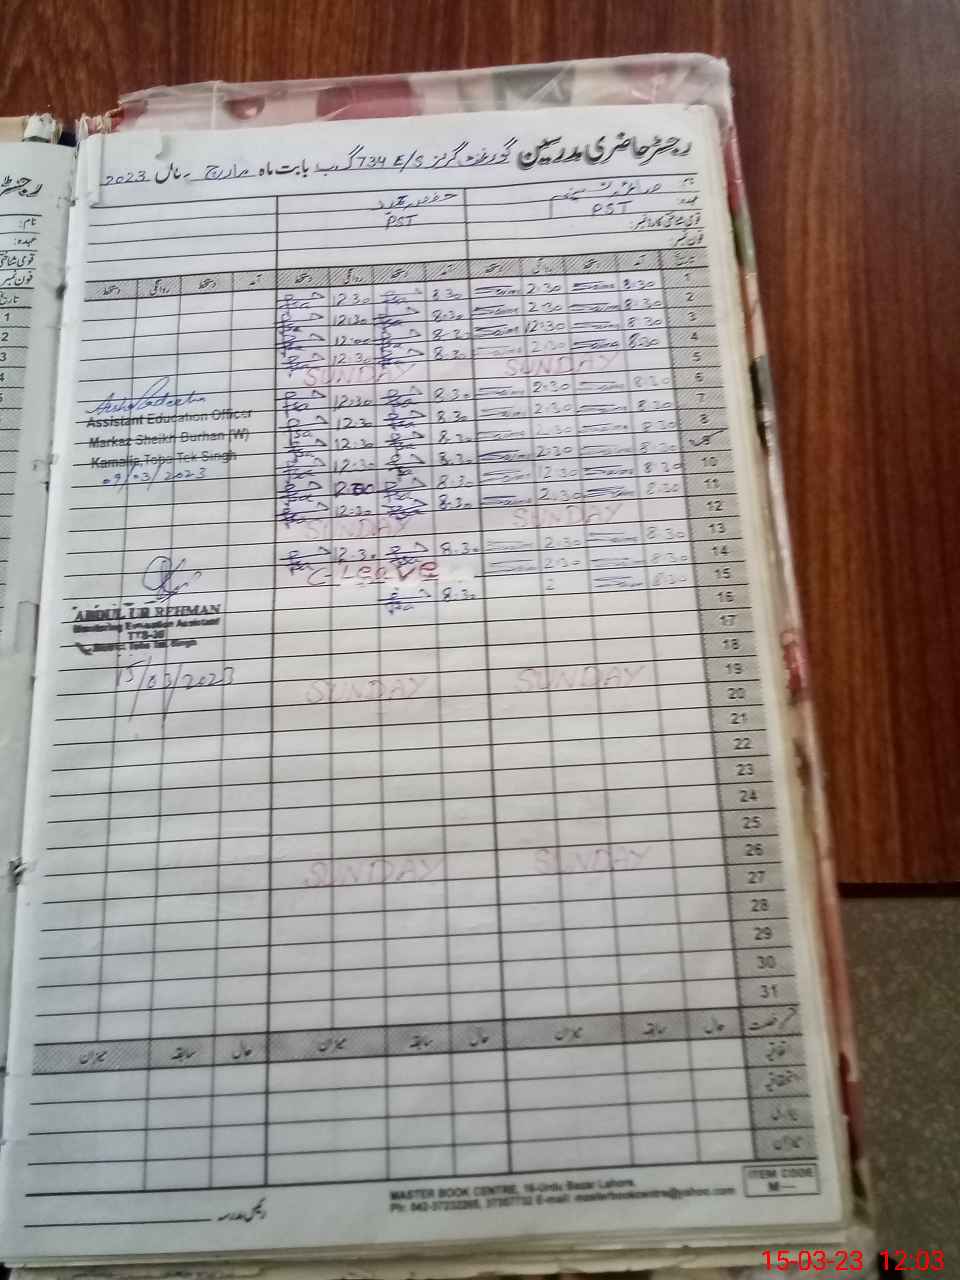 رجسٹر حاضری مدرسین گورنمنٹ گرلز E/S 734 گ ب بابت ماہ مارچ سال 2023
نام:
عہدہ: PST PST
قومی شناختی کارڈ نمبر:
فون نمبر:
تاریخ آمد دستخط روانگی دستخط آمد دستخط روانگی دستخط آمد دستخط روانگی دستخط
1 8:30 2:30 8:30 12:30
2 8:30 2:30 8:30 12:30
3 8:30 12:30 8:30 12:00
4 8:30 2:30 8:30 12:30
5 SUNDAY SUNDAY
6 8:30 2:30 8:30 12:30
7 8:30 2:30 8:30 12:30
8 8:30 2:30 8:30 12:30
9 8:30 2:30 8:30 12:30
10 8:30 12:30 8:30
11 8:30 2:30 8:30 12:30
12 SUNDAY SUNDAY
13 8:30 2:30 8:30 12:30
14 8:30 2:30 C-Leave
15 8:30 2 8:30
16
17
18
19 SUNDAY SUNDAY
20
21
22
23
24
25
26 SUNDAY SUNDAY
27
28
29
30
31
Assistant Education Officer
Markaz Sheikh Burhan (W)
Kamalia, Toba Tek Singh
09/03/2023
ABDUL UR REHMAN
Monitoring Evaluation Assistant
TTS-20
District Toba Tek Singh
15/03/2023
قسم رخصت حال سابقہ میزان حال سابقہ میزان حال سابقہ میزان
اتفاقیہ
استحقاقیہ
بیماری
میزان
رئیس مدرسہ
MASTER BOOK CENTRE, 16-Urdu Bazar Lahore.
E-mail: masterbookcentre@yahoo.com
ITEM CODE
M—
رجسٹر
نام:
عہدہ:
قومی شناختی
فون نمبر
تاریخ
1
2
3
4
15-03-23 12:03